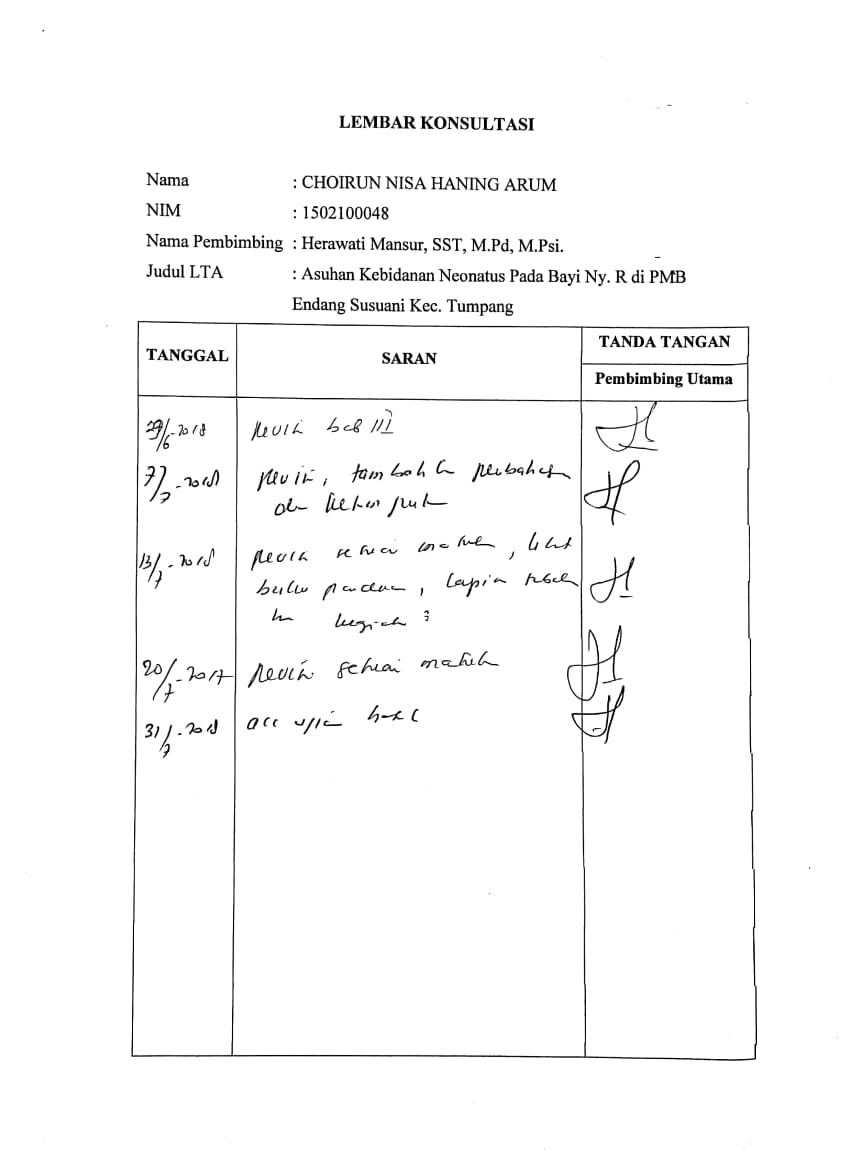 LEMBAR KONSULTASI
Nama : CHOIRUN NISA HANING ARUM
NIM : 1502100048
Nama Pembimbing : Herawati Mansur, SST, M.Pd, M.Psi.
Judul LTA : Asuhan Kebidanan Neonatus Pada Bayi Ny. R di PMB
Endang Susuani Kec. Tumpang
TANGGAL SARAN TANDA TANGAN
Pembimbing Utama
29/6-2018 Revisi bab III
/7-2018 Revisi, tambah
13/7-2018 Revisi sesuai , lihat
buku panduan,
20/7-2017 Revisi sesuai
31/7-2018 acc ujian hasil